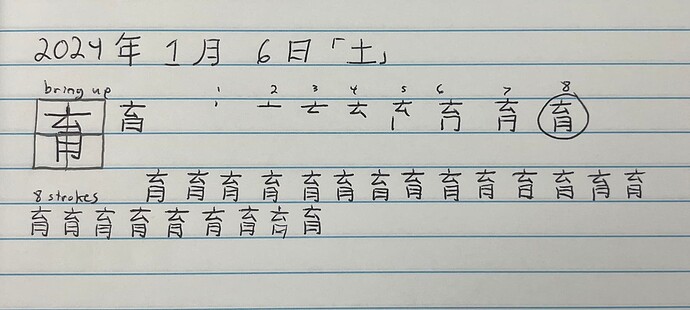 2024年 1月 6日「土」
bring up 1 2 3 4 5 6 7 8
育 育 丶 亠 育
育 育 育 育 育 育 育 育 育 育 育 育 育 育
8 strokes
育 育 育 育 育 育 育 育 育